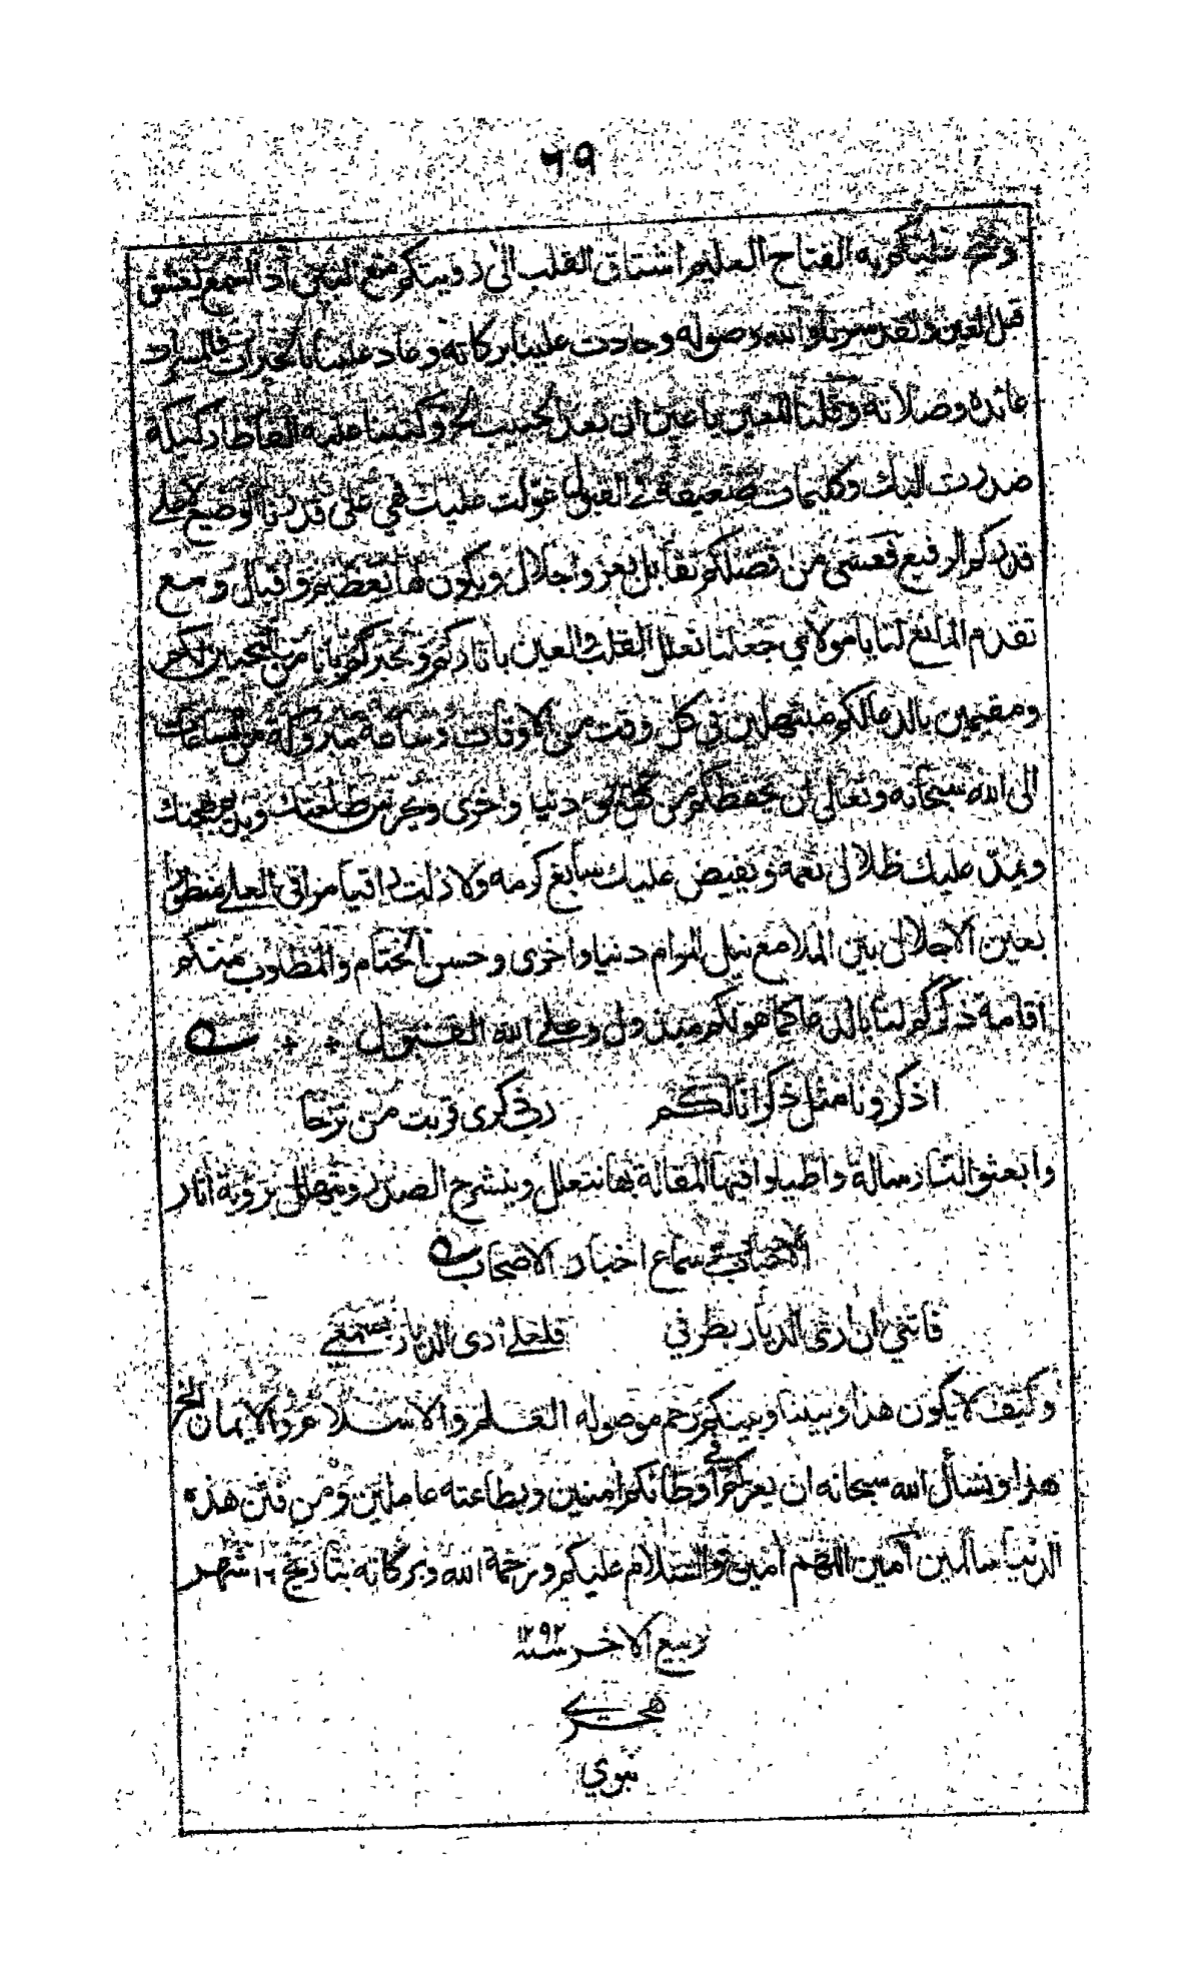 ٦٩
وفتح عليكم به الفتاح العليم اشتاق القلب الى رويتكم مع العين اذ السمع يعشق
قبل العين ولقد سرنا والله وصوله وجادت علينا بركاته وعاد علينا بالخيرات والمسرات
عائده وصلاته وقلنا للعين يا عين ان بعد الحبيب الخ وكتبنا عليه الفاظا ركيكة
صدرت اليك وكليمات ضعيفة في القبول عولت عليك فهي على قدرنا الوضيع لا على
قدركم الرفيع فعسى من فضلكم تقابل بعز واجلال ويكون لها تعظيم واقبال ومع
تقدم المانع لنا يا مولاي جعلنا نعلل القلب والعين باثاركم ونخبركم بانا من المحبين لكم
ومقيمين بالدعا لكم مبتهلين في كل وقت من الاوقات وساعة من الساعات
الى الله سبحانه وتعالى ان يحفظكم من كل دنيا واخرى ويحرس طلعتك ويديم بهجتك
ويمد عليك ظلال نعمه ويفيض عليك سابغ كرمه ولا زلت راقيا مراقي العلى منظورا
بعين الاجلال بين الملا مع نيل المرام دنيا واخرى وحسن الختام والمطلوب منكم
اقامة ذكركم لنا بالدعا كما هو لكم مبذول وعلى الله القبول
اذكرونا مثل ذكرانا لكم رب ذكرى قربت من نزحا
وابعثوا الينا رسالة واطيلوا فيها المقالة بها نتعلل وينشرح الصدر ويتهلل برؤية اثار
الاحباب وسماع اخبار الاصحاب
فاتني ان ارى الديار بطرفي فلعلي ارى الديار بسمعي
وكيف لا يكون هذا وبيننا وبينكم رحم موصوله العلم والاسلام والايمان الخ
هذا ونسأل الله سبحانه ان يعزكم في اوطانكم امنين وبطاعته عاملين ومن فتن هذه
الدنيا سالمين آمين اللهم امين والسلام عليكم ورحمة الله وبركاته بتاريخ ١٦ شهر
ربيع الاخر سنه ١٢٩٢
هجري
نبوي